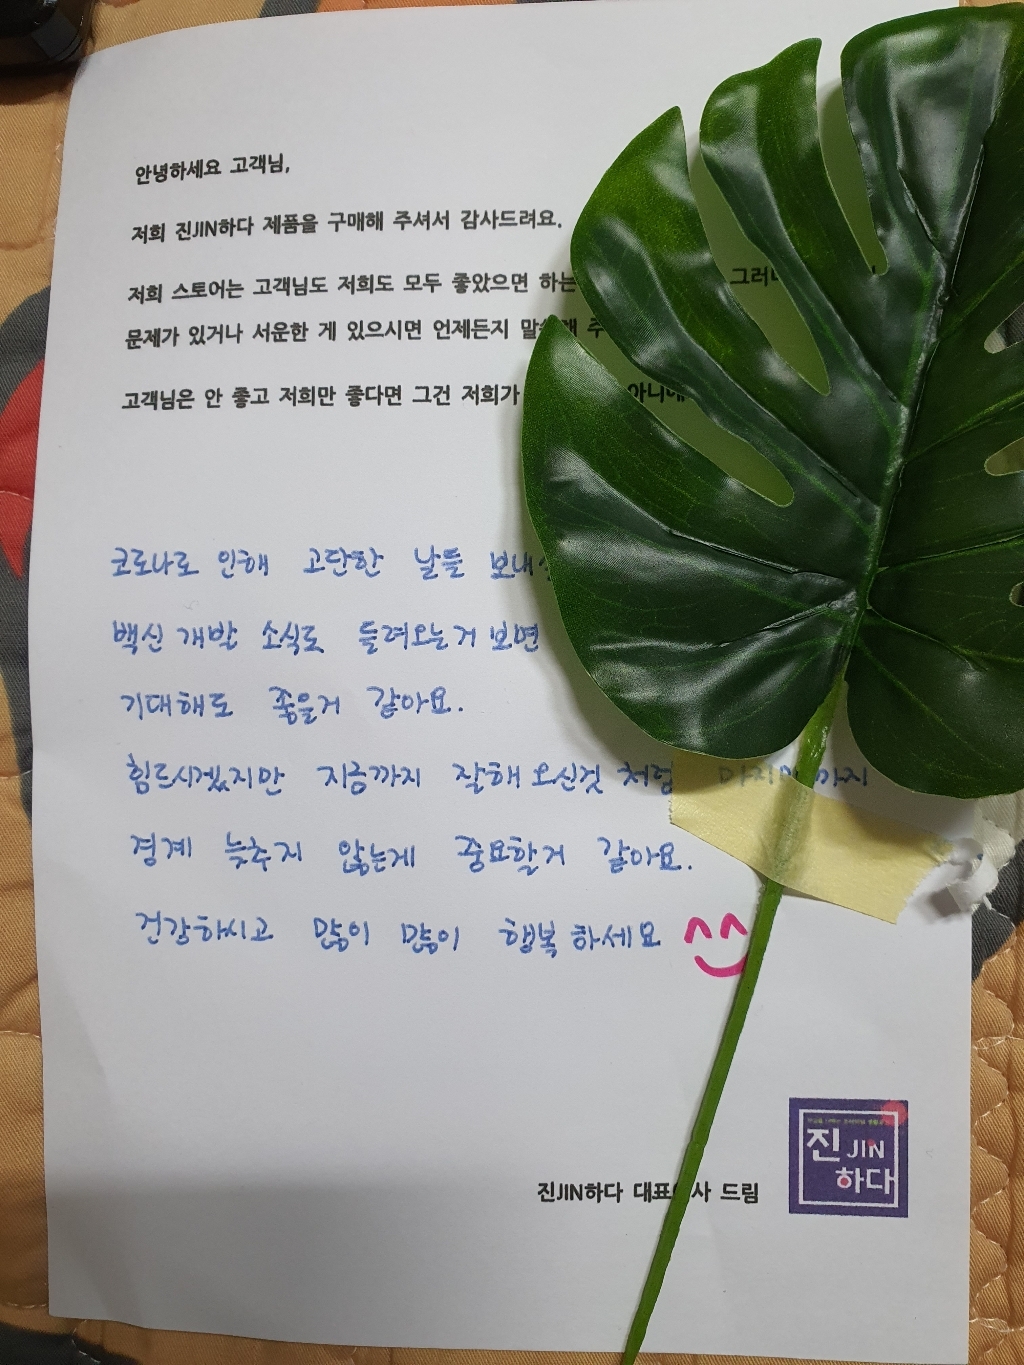 안녕하세요 고객님,
저희 진JIN하다 제품을 구매해 주셔서 감사드려요.
저희 스토어는 고객님도 저희도 모두 좋았으면 하는
문제가 있거나 서운한 게 있으시면 언제든지
고객님은 안 좋고 저희만 좋다면 그건 저희가
코로나로 인해 고단한 날들
백신 개발 소식도 들려오는거 보면
기대해도 좋을거 같아요.
힘드시겠지만 지금까지 잘해 오신것 처럼 까지
경계 늦추지 않는게 중요할거 같아요.
건강하시고 많이 많이 행복하세요
진JIN하다 드림
진 JIN
하다